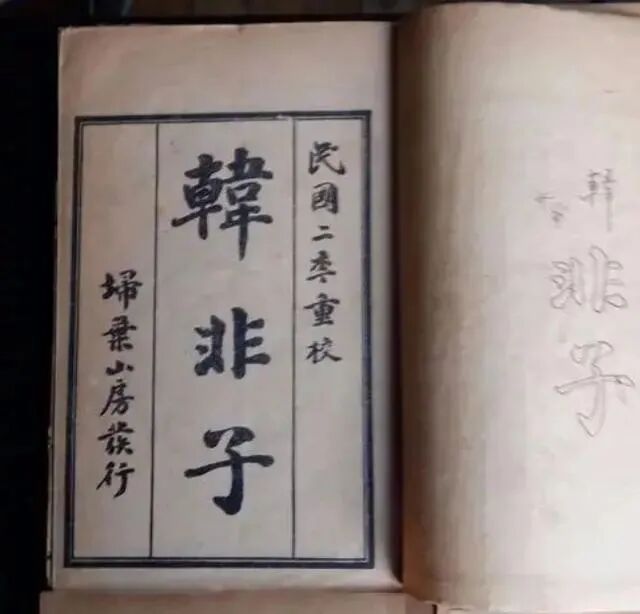 民國二年重校
韓非子
掃葉山房發行
韓
非子